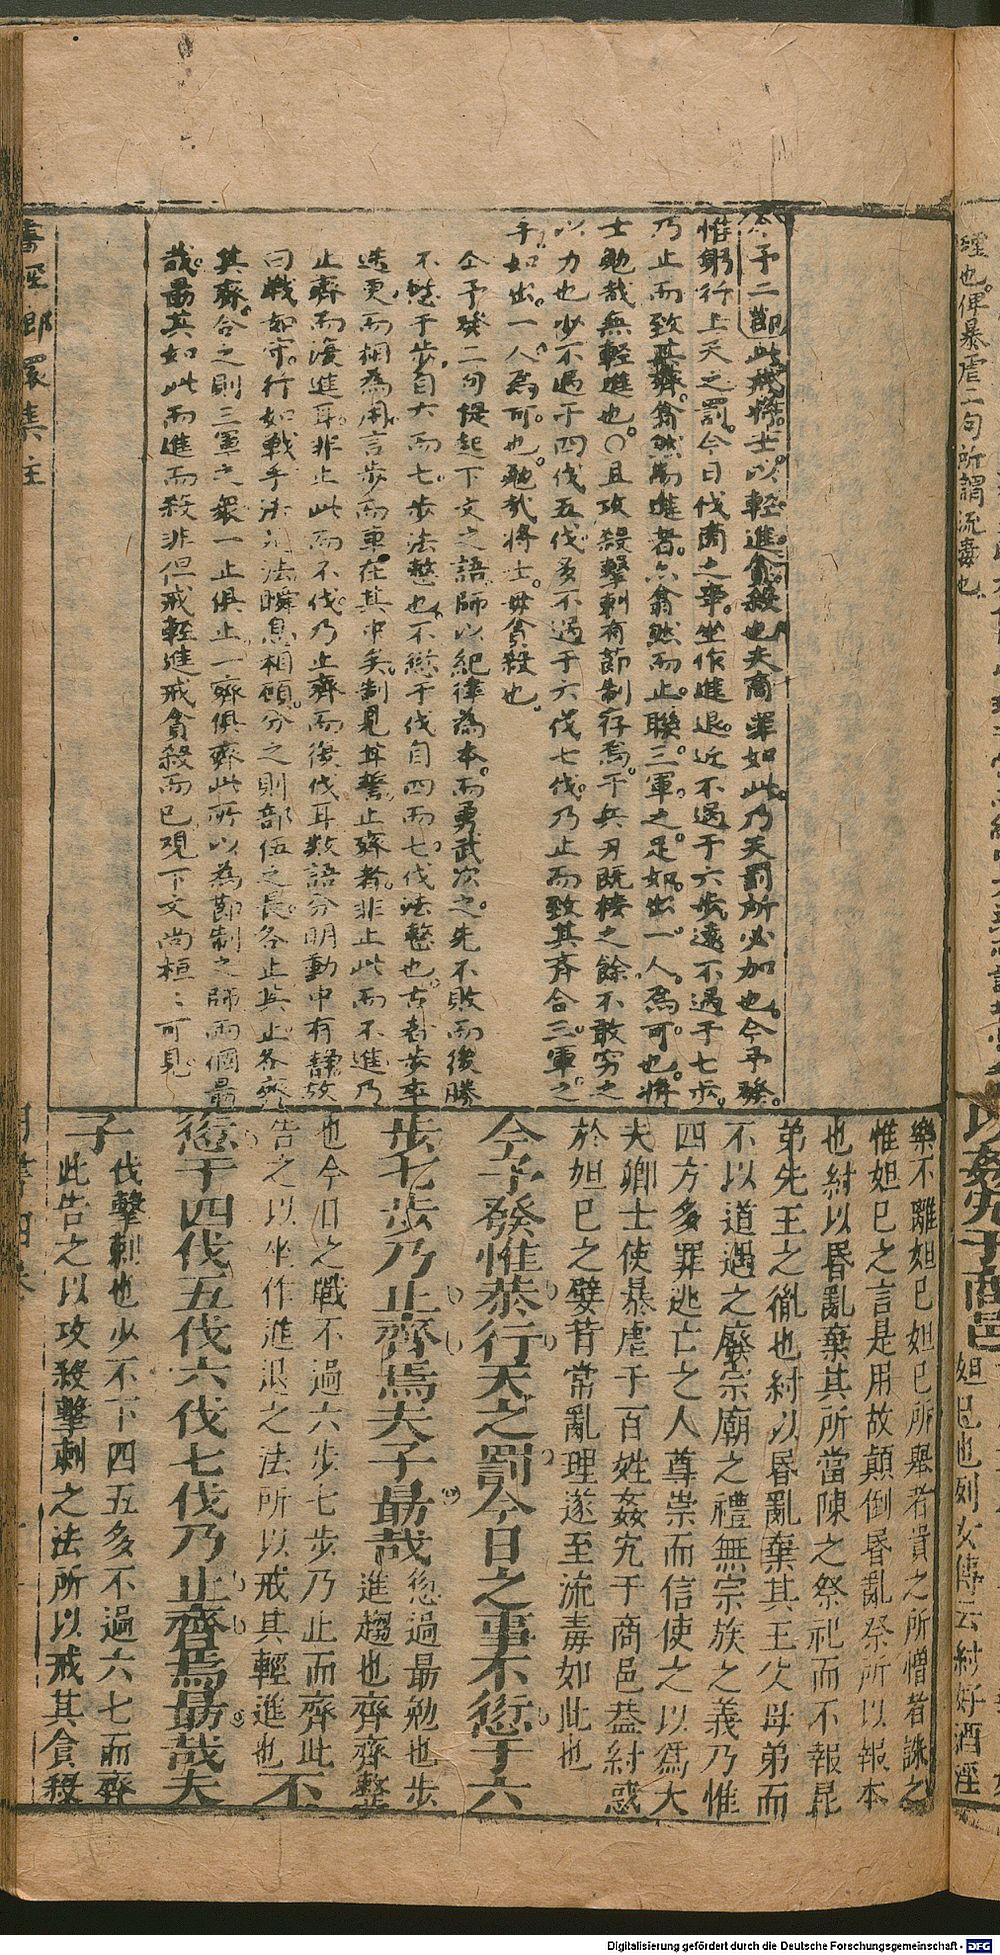 經也俾暴虐二句所謂流毒也
今予二節此戒將士以輕進貪殺也夫商罪如此乃天罰所必加也今予發
惟躬行上天之罰今日伐商之事坐作進退近不過于六步遠不過于七步
乃止而致其齊翕然而進者亦翕然而止聯三軍之足如出一人焉可也將
士勉哉無輕進也○且攻殺擊刺有節制存焉于兵刃既接之餘不敢窮之
以力也少不過于四伐五伐多不過于六伐七伐乃止而致其齊合三軍之
手如出一人焉可也勉哉將士毋貪殺也
今予發二句提起下文之語師以紀律為本而勇武次之先不敗而後勝
不愆于步自六而七步法整也不愆于伐自四而七伐法整也古者步卒
迭更而相為用言步而車在其中矣制見其誓止齊者非止此而不進乃
止齊而復進耳非止此而不伐乃止齊而後伐耳數語分明動中有靜故
曰戰如守行如戰手法足法瞬息相顧分之則部伍之長各止其止各齊
其齊合之則三軍之衆一止俱止一齊俱齊此所以為節制之師兩個勗
哉勗其如此而進而殺非但戒輕進戒貪殺而已觀下文尚桓桓可見
樂不離妲己妲己所舉者貴之所憎者誅之
惟妲己之言是用故顛倒昏亂祭所以報本
也紂以昏亂棄其所當陳之祭祀而不報昆
弟先王之胤也紂以昏亂棄其王父母弟而
不以道遇之廢宗廟之禮無宗族之義乃惟
四方多罪逃亡之人尊崇而信使之以爲大
夫卿士使暴虐于百姓姦宄于商邑蓋紂惑
於妲己之嬖背常亂理遂至流毒如此也
今予發惟恭行天之罰今日之事不愆于六
步七步乃止齊焉夫子勗哉愆過勗勉也步
進趨也齊齊整
也今日之戰不過六步七步乃止而齊此
告之以坐作進退之法所以戒其輕進也不
愆于四伐五伐六伐七伐乃止齊焉勗哉夫
子伐擊刺也少不下四五多不過六七而齊
此告之以攻殺擊刺之法所以戒其貪殺
以姦宄于商邑
妲己也列女傳云紂好酒淫
Digitalisierung gefördert durch die Deutsche Forschungsgemeinschaft - DFG